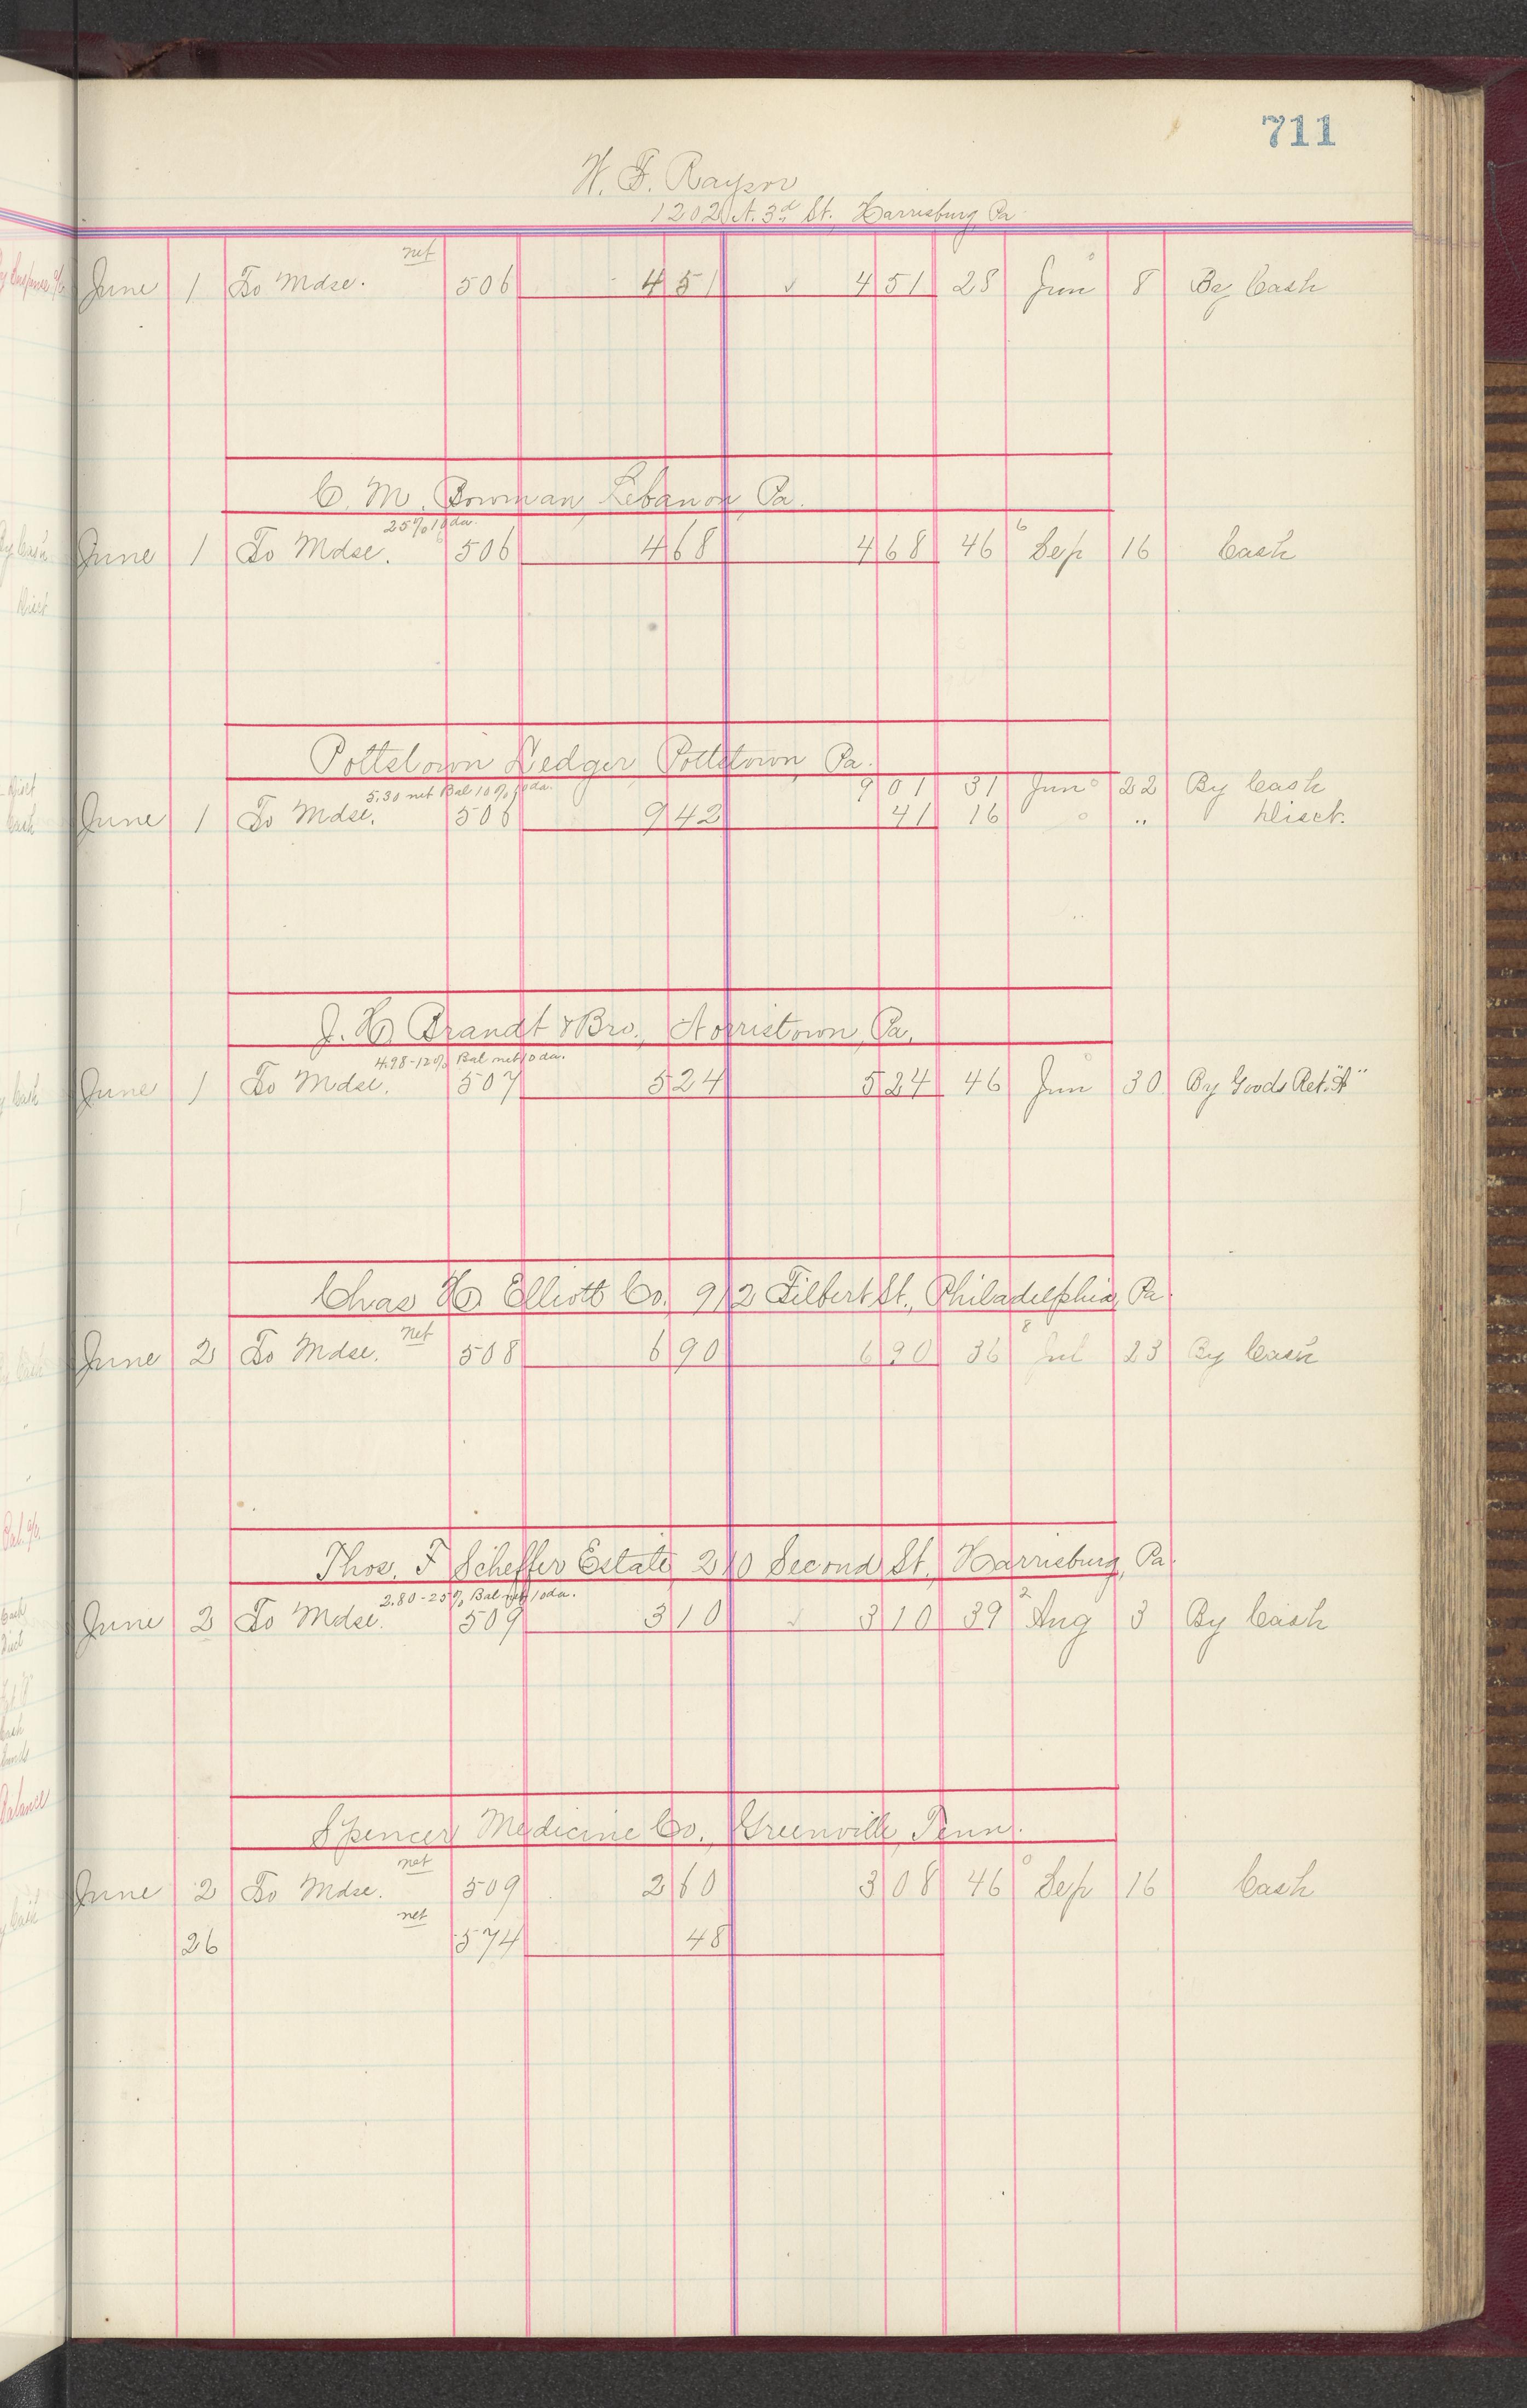 711
W. F. Raysor
1202 N. 3rd St. Harrisburg Pa
net
June 1 To Mdse. 506 4 51 √ 4 51 28 Jun 8 By Cash
C. M. Bowman, Lebanon, Pa.
25% 10 da. 6
June 1 To Mdse. 506 4 68 4 68 46 Sep 16 Cash
Pottstown Ledger, Pottstown, Pa.
5.30 net Bal 10% 10 da. 9 01 31 Jun 22 By Cash
June 1 To Mdse. 506 9 42 41 16 " Disct.
J. H. Brandt & Bro., Norristown, Pa.
4.98-12% Bal net 10 da.
June 1 To Mdse. 507 5 24 5 24 46 Jun 30 By Goods Ret. "A"
Chas H. Elliott Co. 912 Filbert St., Philadelphia, Pa
net 8
June 2 To Mdse. 508 6 90 6 90 36 Jul 23 By Cash
Thos. F Scheffer Estate 210 Second St., Harrisburg, Pa.
2.80-25% Bal net 10 da. 2
June 2 To Mdse. 509 3 10 √ 3 10 39 Aug 3 By Cash
Spencer Medicine Co., Greenville, Penn.
net 0
June 2 To Mdse. 509 2 60 3 08 46 Sep 16 Cash
net
26 574 48